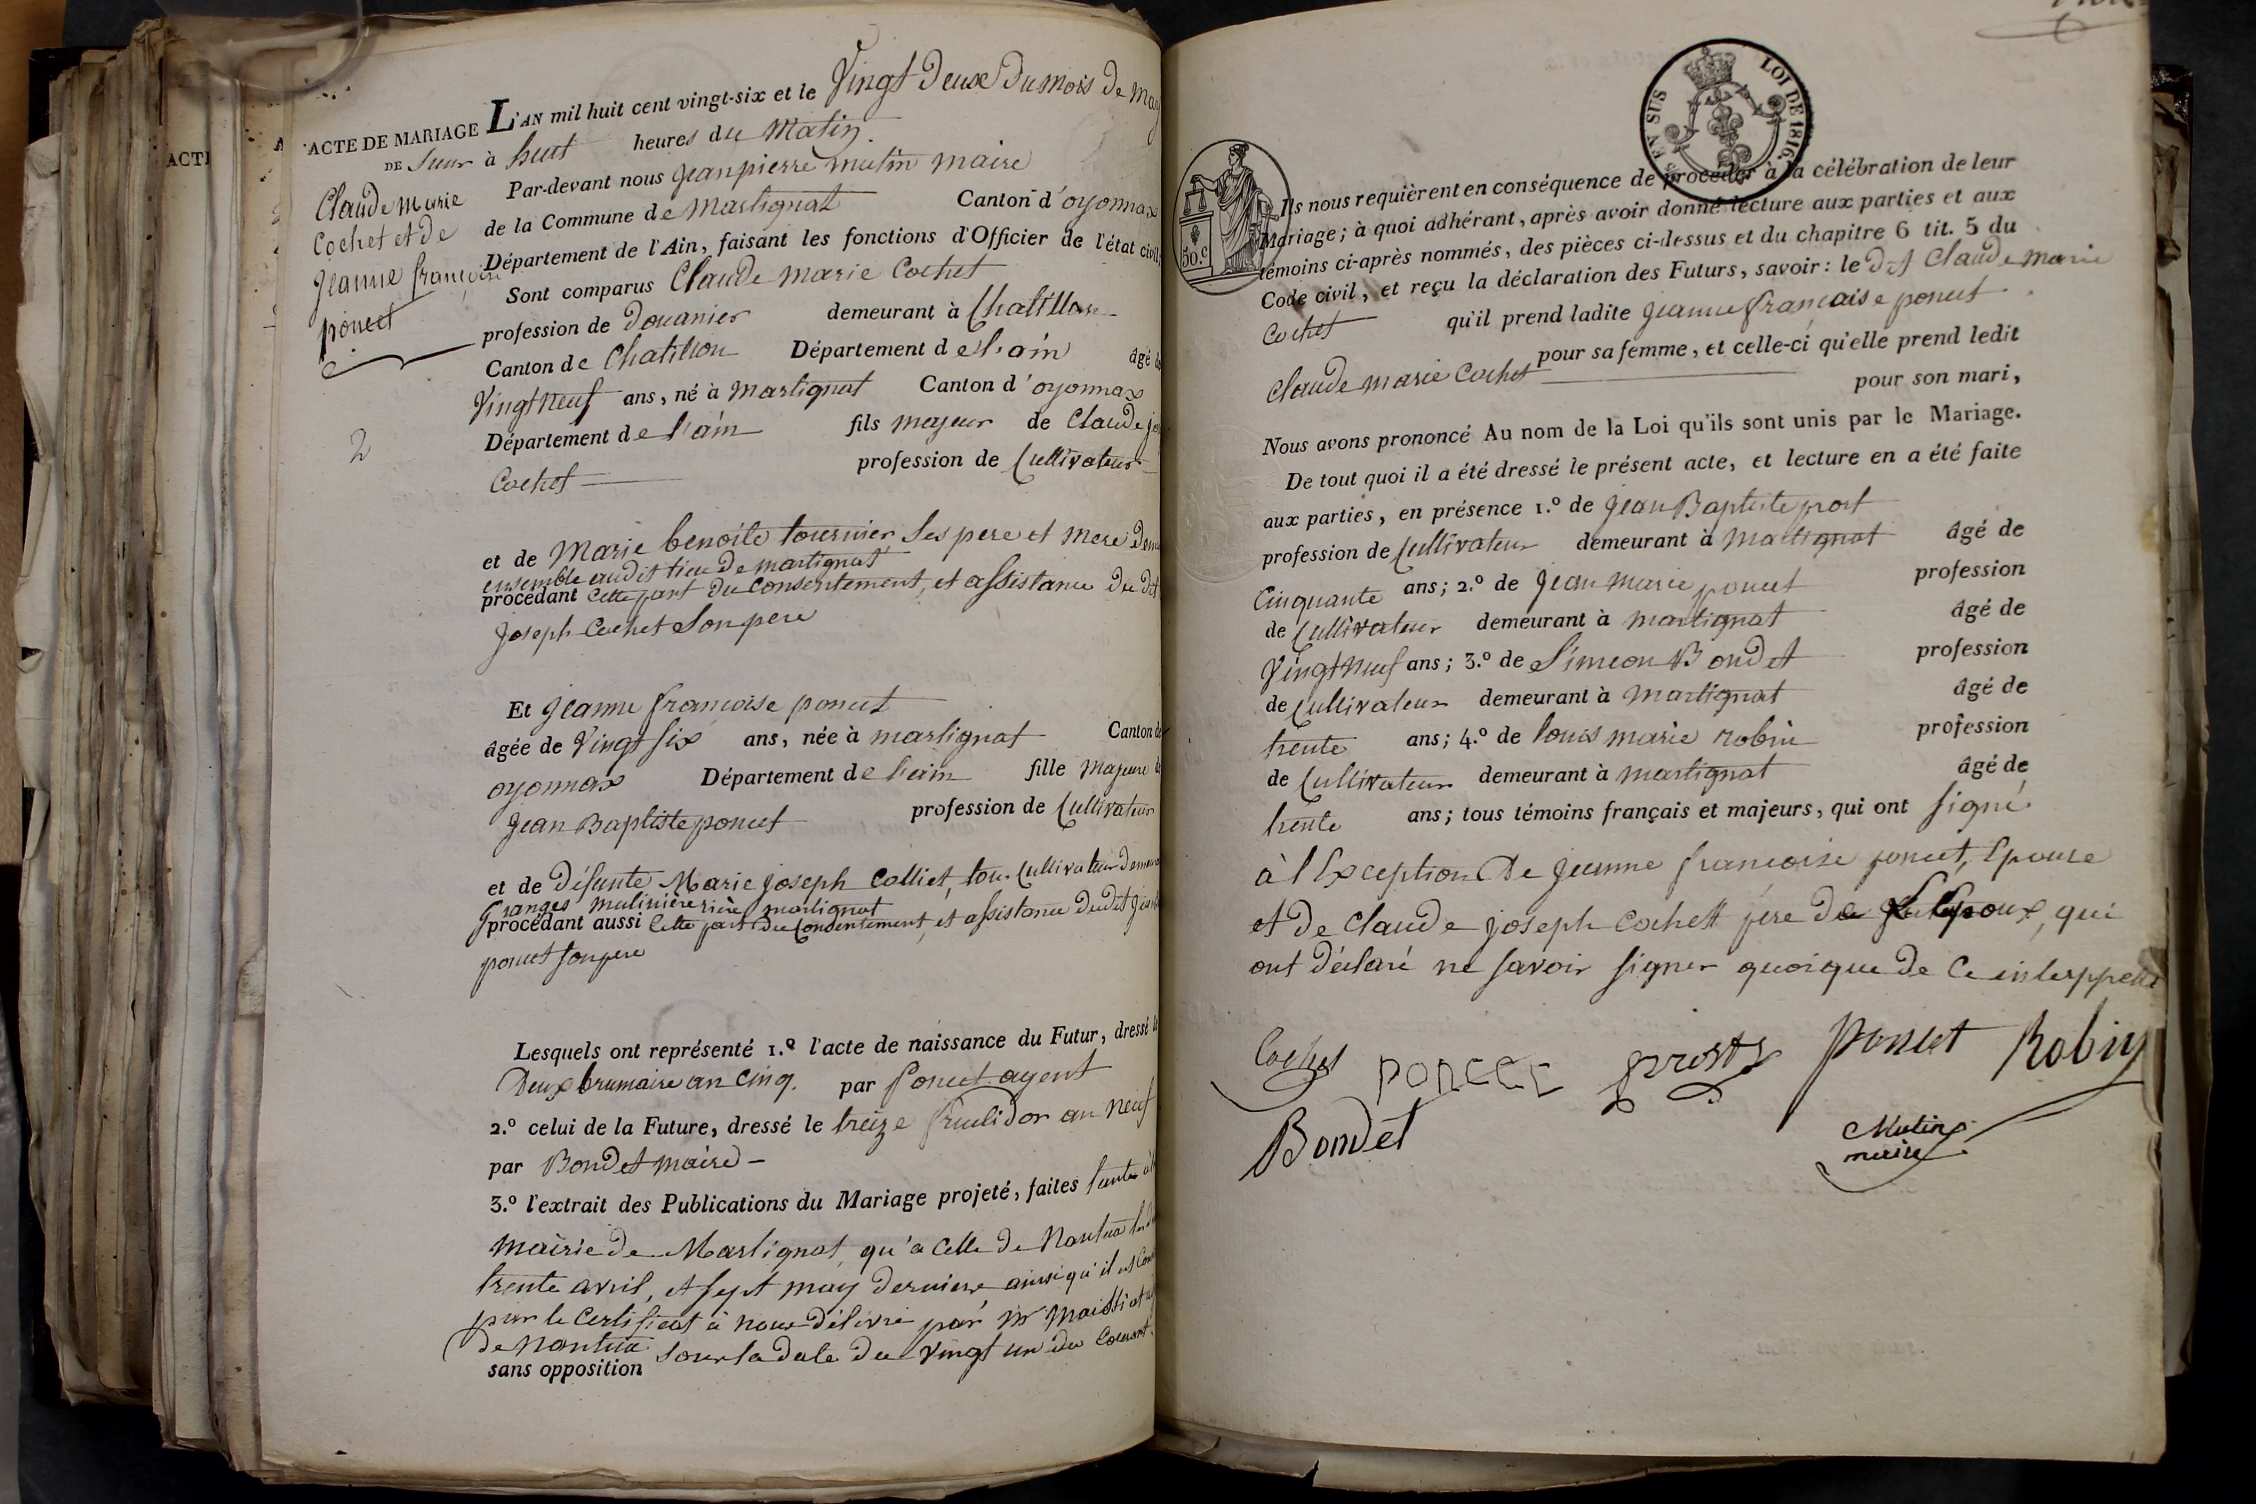 ACTE DE MARIAGE
DE Sieur
Claude Marie
Cochet et de
Jeanne françoise
poncet
2
L'AN mil huit cent vingt-six et le Vingt Deux Du mois De may
à huit heures du Matin
Par-devant nous Jean pierre mutin maire
de la Commune de Martignat Canton d'oyonnax
Département de l'Ain, faisant les fonctions d'Officier de l'état civil
Sont comparus Claude Marie Cochet
profession de Douanier demeurant à Chatillon
Canton de Chatillon Département de l'ain âgé de
Vingt neuf ans, né à Martignat Canton d'oyonnax
Département de l'ain fils majeur de Claude jo
Cochet profession de Cultivateur
et de Marie benoite tournier Ses pere et mere Dem
ensemble audit lieu De martignat
procédant Cette part du Consentement, et assistance Du dit
Joseph Cochet Son pere
Et Jeanne françoise poncet
âgée de Vingt six ans, née à martignat Canton de
oyonnax Département de l'ain fille majeure de
Jean Baptiste poncet profession de Cultivateur
et de Défunte Marie Joseph Colliet, Cultivateur Demeurant
Granges mulinière rière martignat
procédant aussi Cette part Du Consentement, et assistance Dudit Jean
poncet son pere
Lesquels ont représenté 1.º l'acte de naissance du Futur, dressé le
Deux brumaire an Cinq. par poncet agent
2.º celui de la Future, dressé le treize fructidor an neuf
par Bondet maire
3.º l'extrait des Publications du Mariage projeté, faites tant à la
Mairie de Martignat, qu'a Celle De Nantua les
trente avril, et sept may Derniere ainsi qu'il est
par le Certificat à nous Délivré par Mr Maissiat
De Nantua
sans opposition sous la date Du Vingt un Du Courant.
EN SUS
LOI DE 1816.
50.c
Ils nous requièrent en conséquence de procéder à la célébration de leur
Mariage; à quoi adhérant, après avoir donné lecture aux parties et aux
témoins ci-après nommés, des pièces ci-dessus et du chapitre 6 tit. 5 du
Code civil, et reçu la déclaration des Futurs, savoir: le Dit Claude marie
Cochet qu'il prend ladite Jeanne françoise poncet
pour sa femme, et celle-ci qu'elle prend ledit
Claude marie Cochet pour son mari,
Nous avons prononcé Au nom de la Loi qu'ils sont unis par le Mariage.
De tout quoi il a été dressé le présent acte, et lecture en a été faite
aux parties, en présence 1.º de Jean Baptiste prost
profession de Cultivateur demeurant à Martignat âgé de
Cinquante ans; 2.º de Jean Marie poncet profession
de Cultivateur demeurant à martignat âgé de
Vingt neuf ans; 3.º de Simeon Bondet profession
de Cultivateur demeurant à martignat âgé de
trente ans; 4.º de louis marie robin profession
de Cultivateur demeurant à martignat âgé de
trente ans; tous témoins français et majeurs, qui ont signé
à l'Exception De Jeanne françoise poncet, Epouse
et De Claude joseph Cochet pere De l'Epoux, qui
ont Déclaré ne savoir signer quoique de Ce interppellé
Cochet poncet prost poncet Robin
Bondet
Mutin
maire